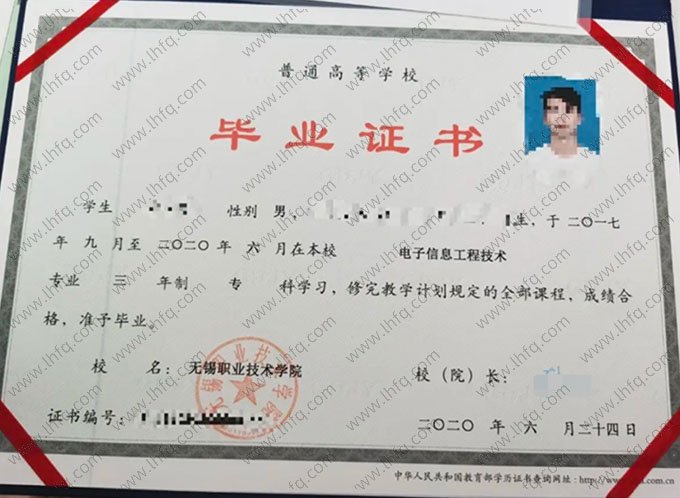 普通高等学校
毕业证书
学生 性别 男， 生，于 二〇一七
年 九 月至 二〇二〇 年 六 月在本校 电子信息工程技术
专业 三 年制 专 科学习，修完教学计划规定的全部课程，成绩合
格，准予毕业。
校 名：无锡职业技术学院
无锡职业技术学院
校（院）长：
证书编号：
二〇二〇 年 六 月二十四日
中华人民共和国教育部学历证书查询网址：http://www.chsi.com.cn
www.lhfq.com